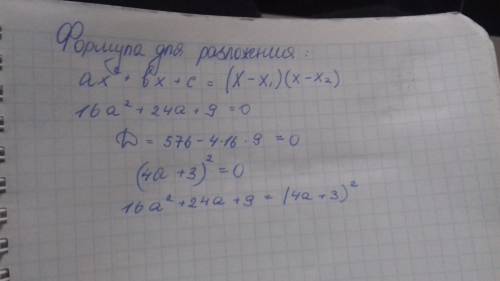 Формула для разложения:
ax² + bx + c = (x - x₁)(x - x₂)
16a² + 24a + 9 = 0
D = 576 - 4·16·9 = 0
(4a + 3)² = 0
16a² + 24a + 9 = (4a + 3)²